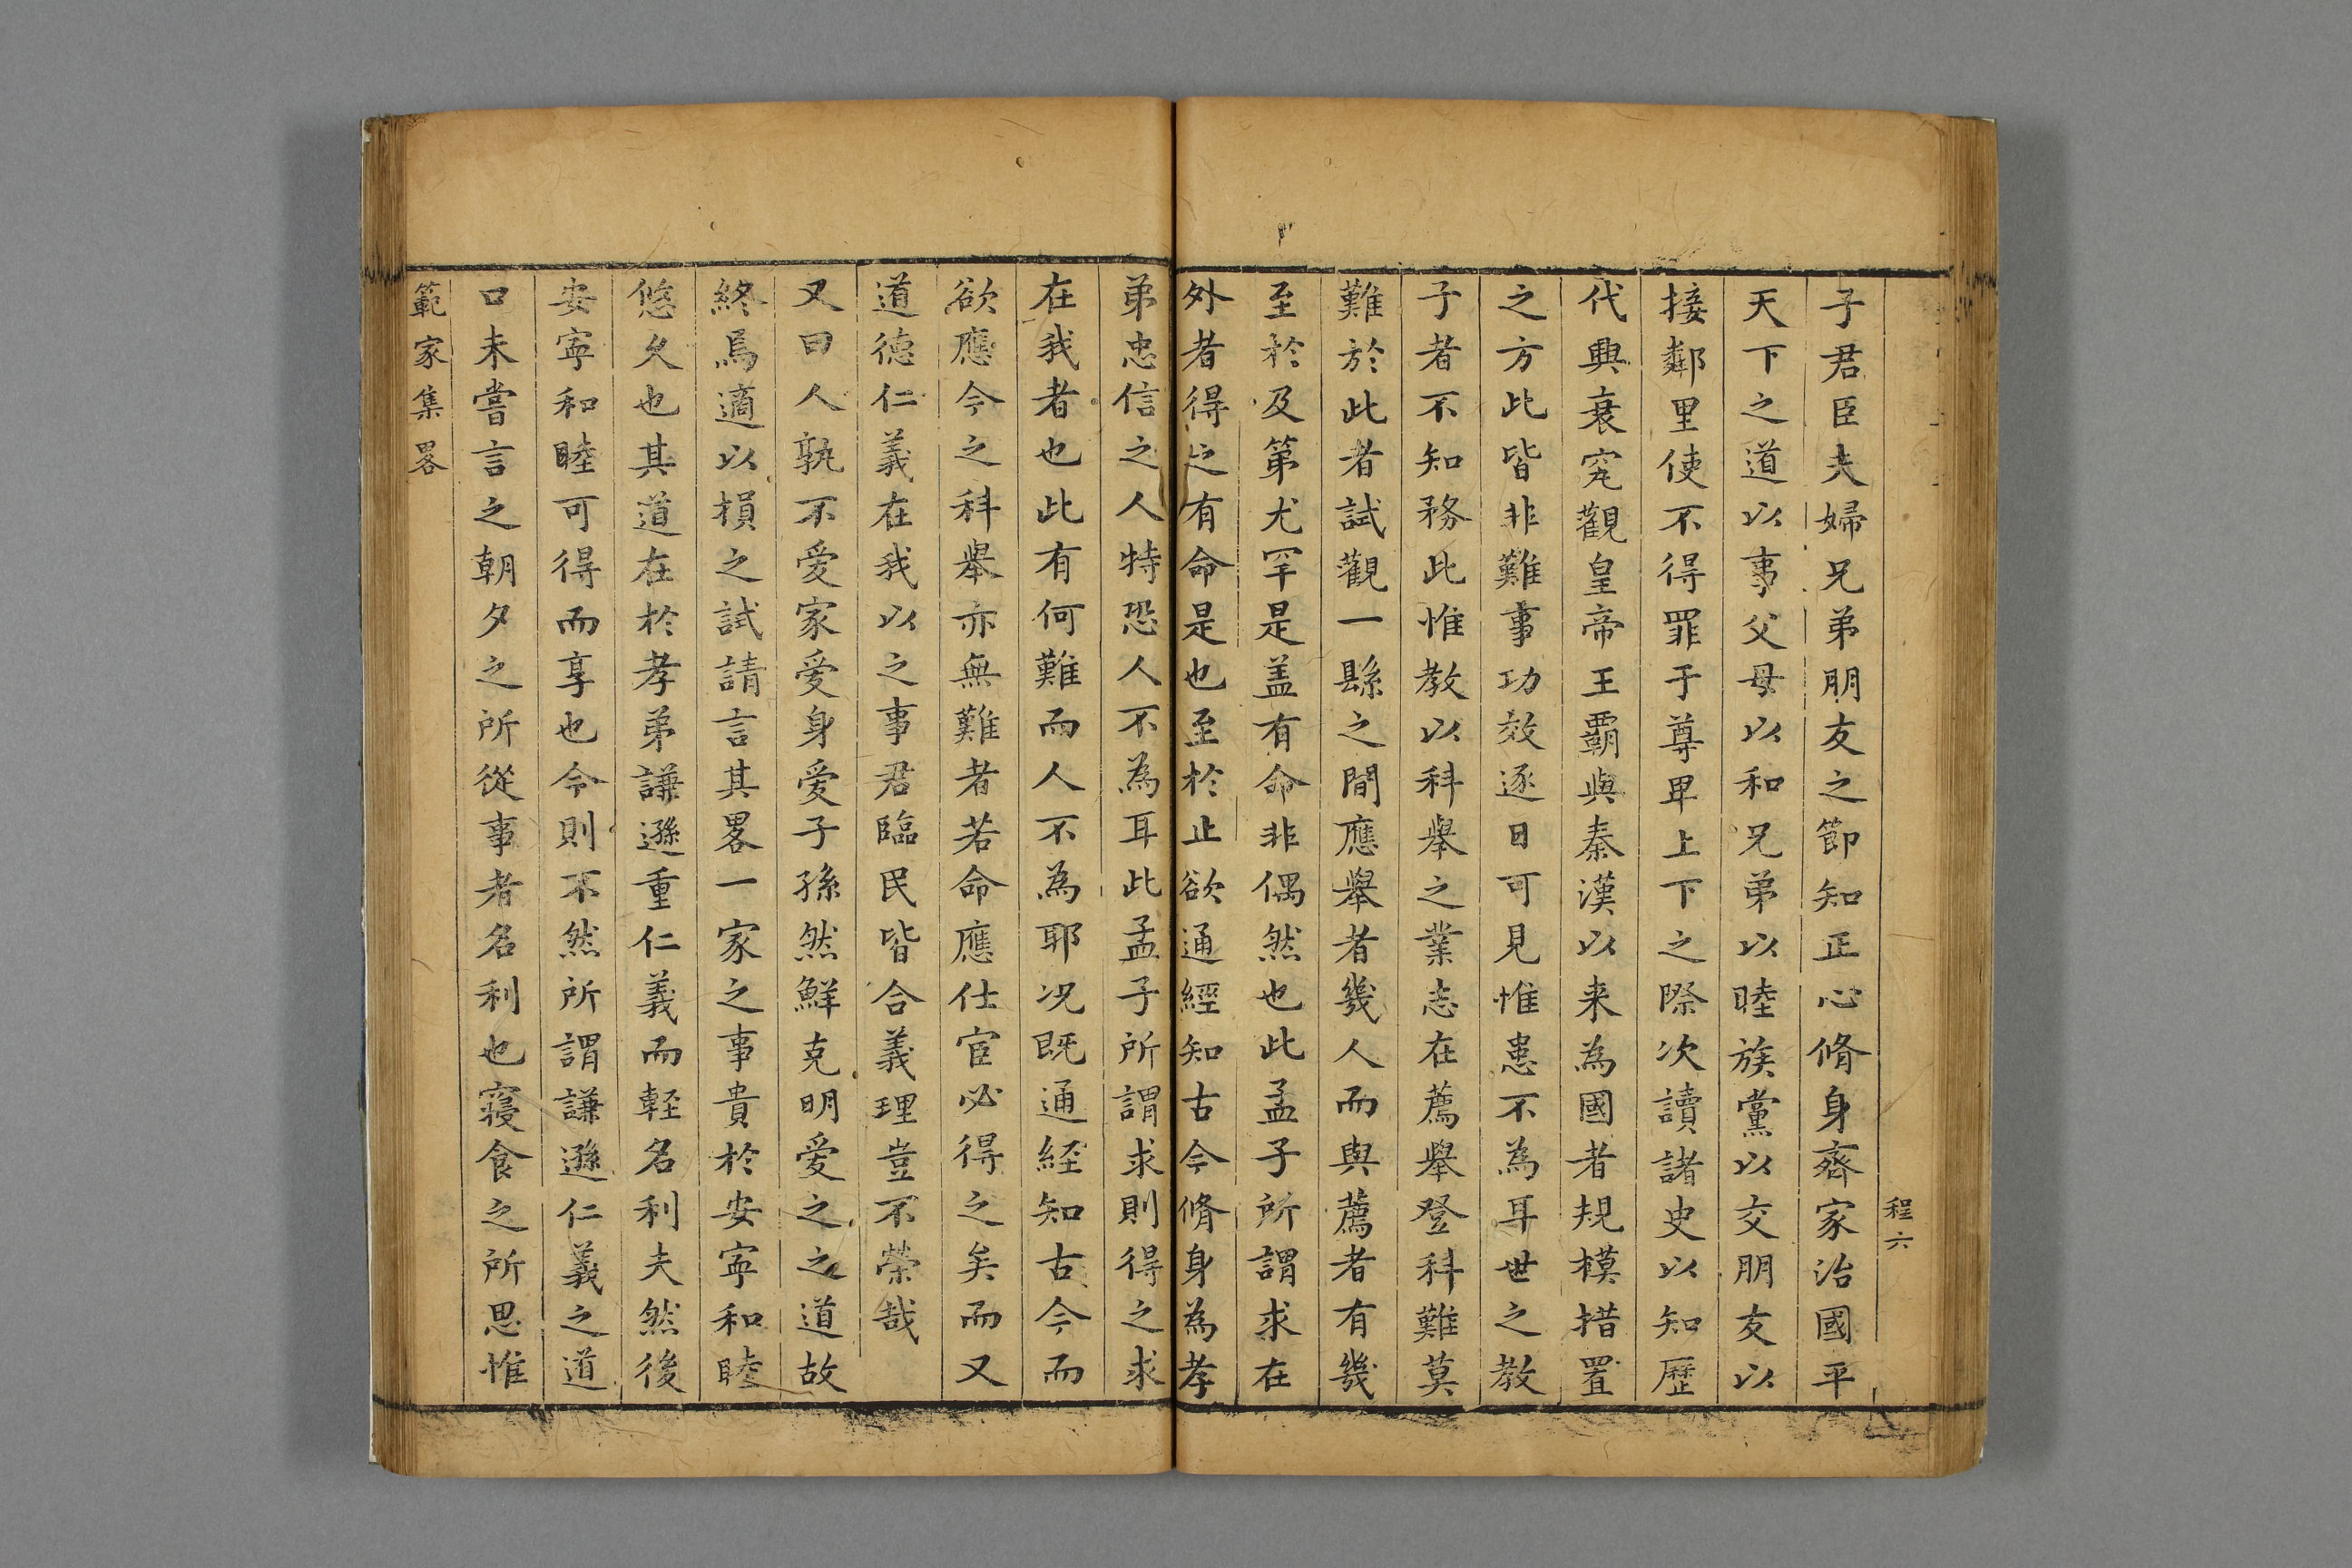 程六
子君臣夫婦兄弟朋友之節知正心脩身齊家治國平
天下之道以事父母以和兄弟以睦族黨以交朋友以
接鄰里使不得罪于尊卑上下之際次讀諸史以知歷
代興衰究觀皇帝王霸與秦漢以来為國者規模措置
之方此皆非難事功效逐日可見惟患不為耳世之教
子者不知務此惟教以科舉之業志在薦舉登科難莫
難於此者試觀一縣之間應舉者幾人而與薦者有幾
至於及第尤罕是盖有命非偶然也此孟子所謂求在
外者得之有命是也至於止欲通經知古今脩身為孝
弟忠信之人特恐人不為耳此孟子所謂求則得之求
在我者也此有何難而人不為耶况既通経知古今而
欲應今之科舉亦無難者若命應仕宦必得之矣而又
道德仁義在我以之事君臨民皆合義理豈不榮哉
又曰人孰不爱家爱身爱子孫然鮮克明爱之之道故
終焉適以損之試請言其畧一家之事貴於安寧和睦
悠久也其道在於孝弟謙遜重仁義而輕名利夫然後
安寧和睦可得而享也今則不然所謂謙遜仁義之道
口未嘗言之朝夕之所從事者名利也寢食之所思惟
範家集畧